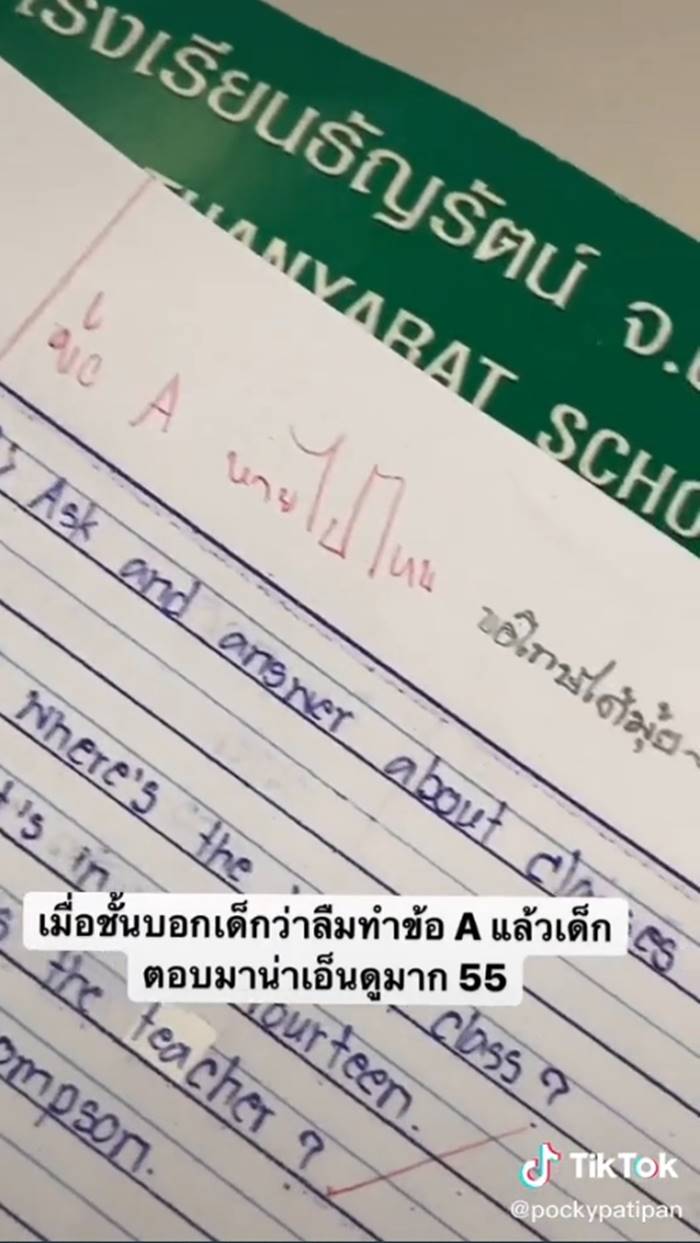 โรงเรียนธัญรัตน์ จ.
THANYARAT SCHO
ข้อ A หายไปไหน
ขอโทษได้มุ้ย~
Ask and answer about classes
Where's the
t's in
class?
fourteen.
the teacher?
ompson.
เมื่อชั้นบอกเด็กว่าลืมทำข้อ A แล้วเด็ก
ตอบมาน่าเอ็นดูมาก 55
TikTok
@pockypatipan